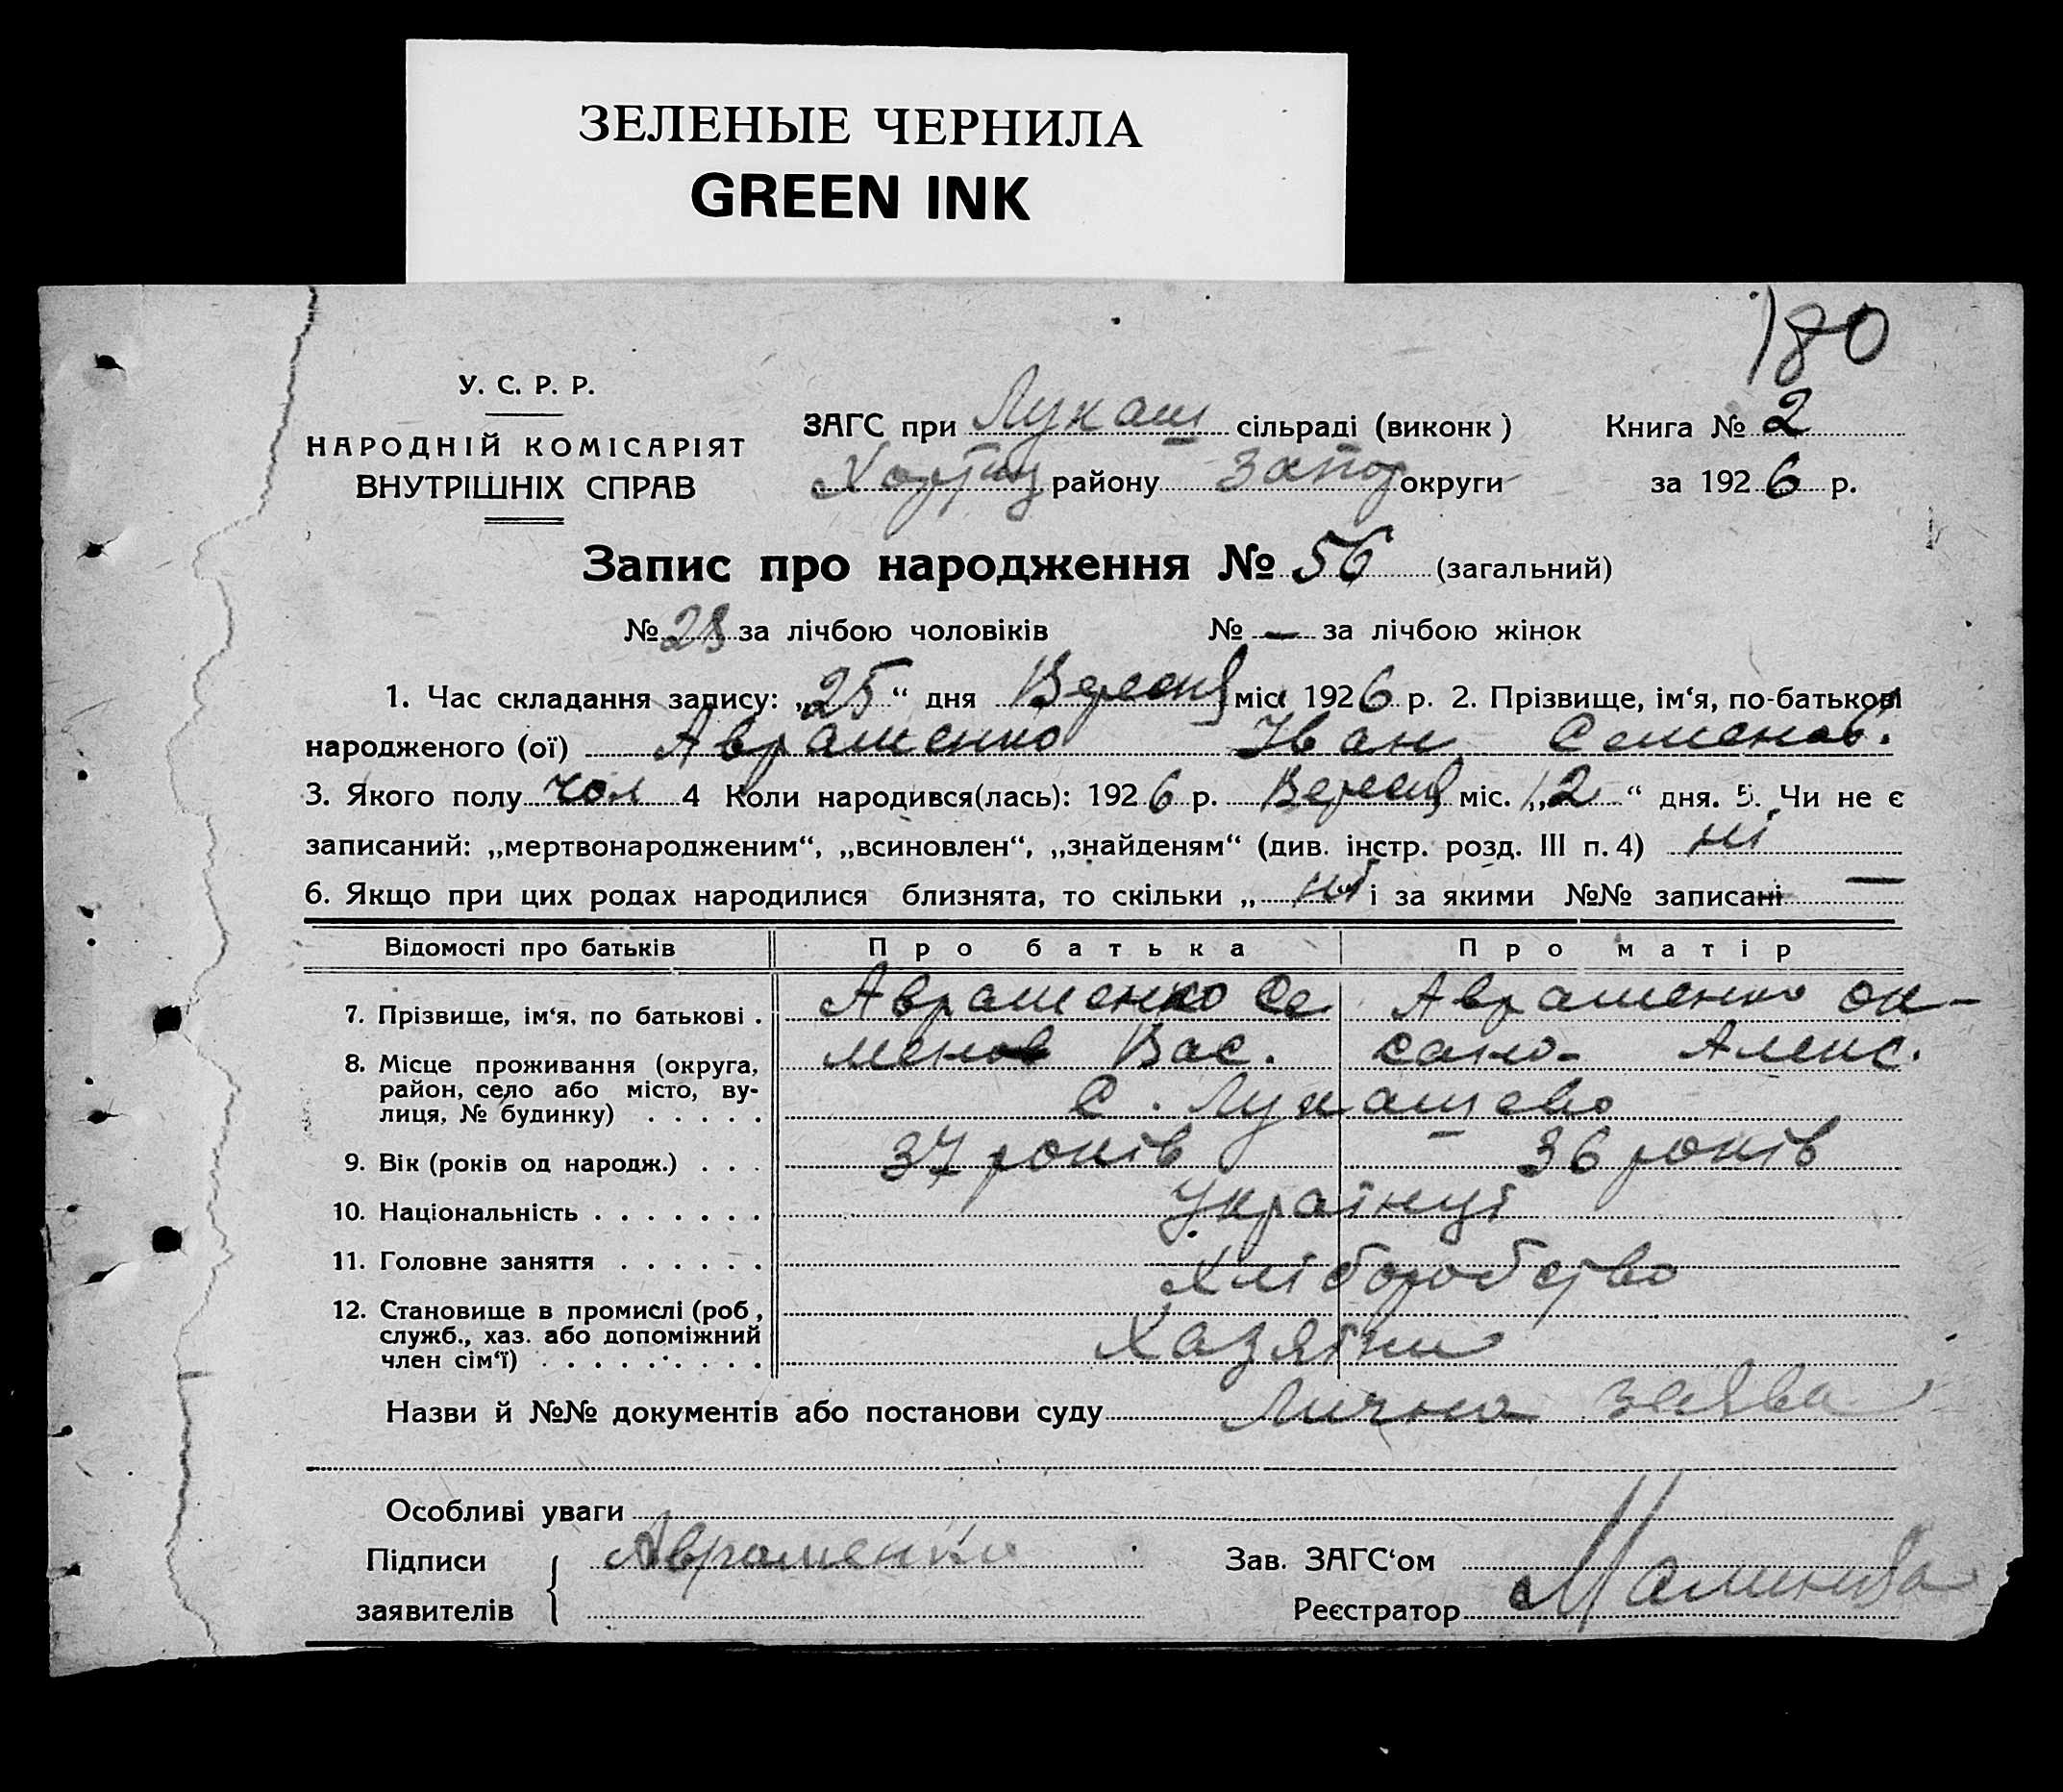 ЗЕЛЕНЫЕ ЧЕРНИЛА
GREEN INK
180
У. С. Р. Р.
НАРОДНІЙ КОМІСАРІЯТ
ВНУТРІШНІХ СПРАВ
ЗАГС при Лукаш сільраді (виконк)
Хортиц району Запор округи
Книга № 2
за 1926 р.
Запис про народження № 56 (загальний)
№ 28 за лічбою чоловіків № — за лічбою жінок
1. Час складання запису: „25“ дня Вересня міс 1926 р. 2. Прізвище, ім‘я, по-батькові
народженого (ої) Авраменко Іван Семенов.
3. Якого полу чол 4 Коли народився(лась): 1926 р. Вересня міс. „12“ дня. 5. Чи не є
записаний: „мертвонародженим“, „всиновлен“, „знайденям“ (див. інстр. розд. III п. 4) ні
6. Якщо при цих родах народилися близнята, то скільки „ ні і за якими №№ записані —
Відомості про батьків Про батька Про матір
7. Прізвище, ім‘я, по батькові . Авраменко Се Авраменко Ок-
менов Вас. сано- Алекс.
8. Місце проживання (округа,
район, село або місто, ву-
лиця, № будинку) . . . . . С. Лукашево
9. Вік (років од народж.) . . . 37 років 36 років
10. Національність . . . . . . . Українці
11. Головне заняття . . . . . . Хліборобство
12. Становище в промислі (роб,
служб., хаз. або допоміжний
член сім‘ї) . . . . . . . . . Хазяїни
Назви й №№ документів або постанови суду Лична заява
Особливі уваги
Підписи Авраменко Зав. ЗАГС‘ом
заявителів Реєстратор